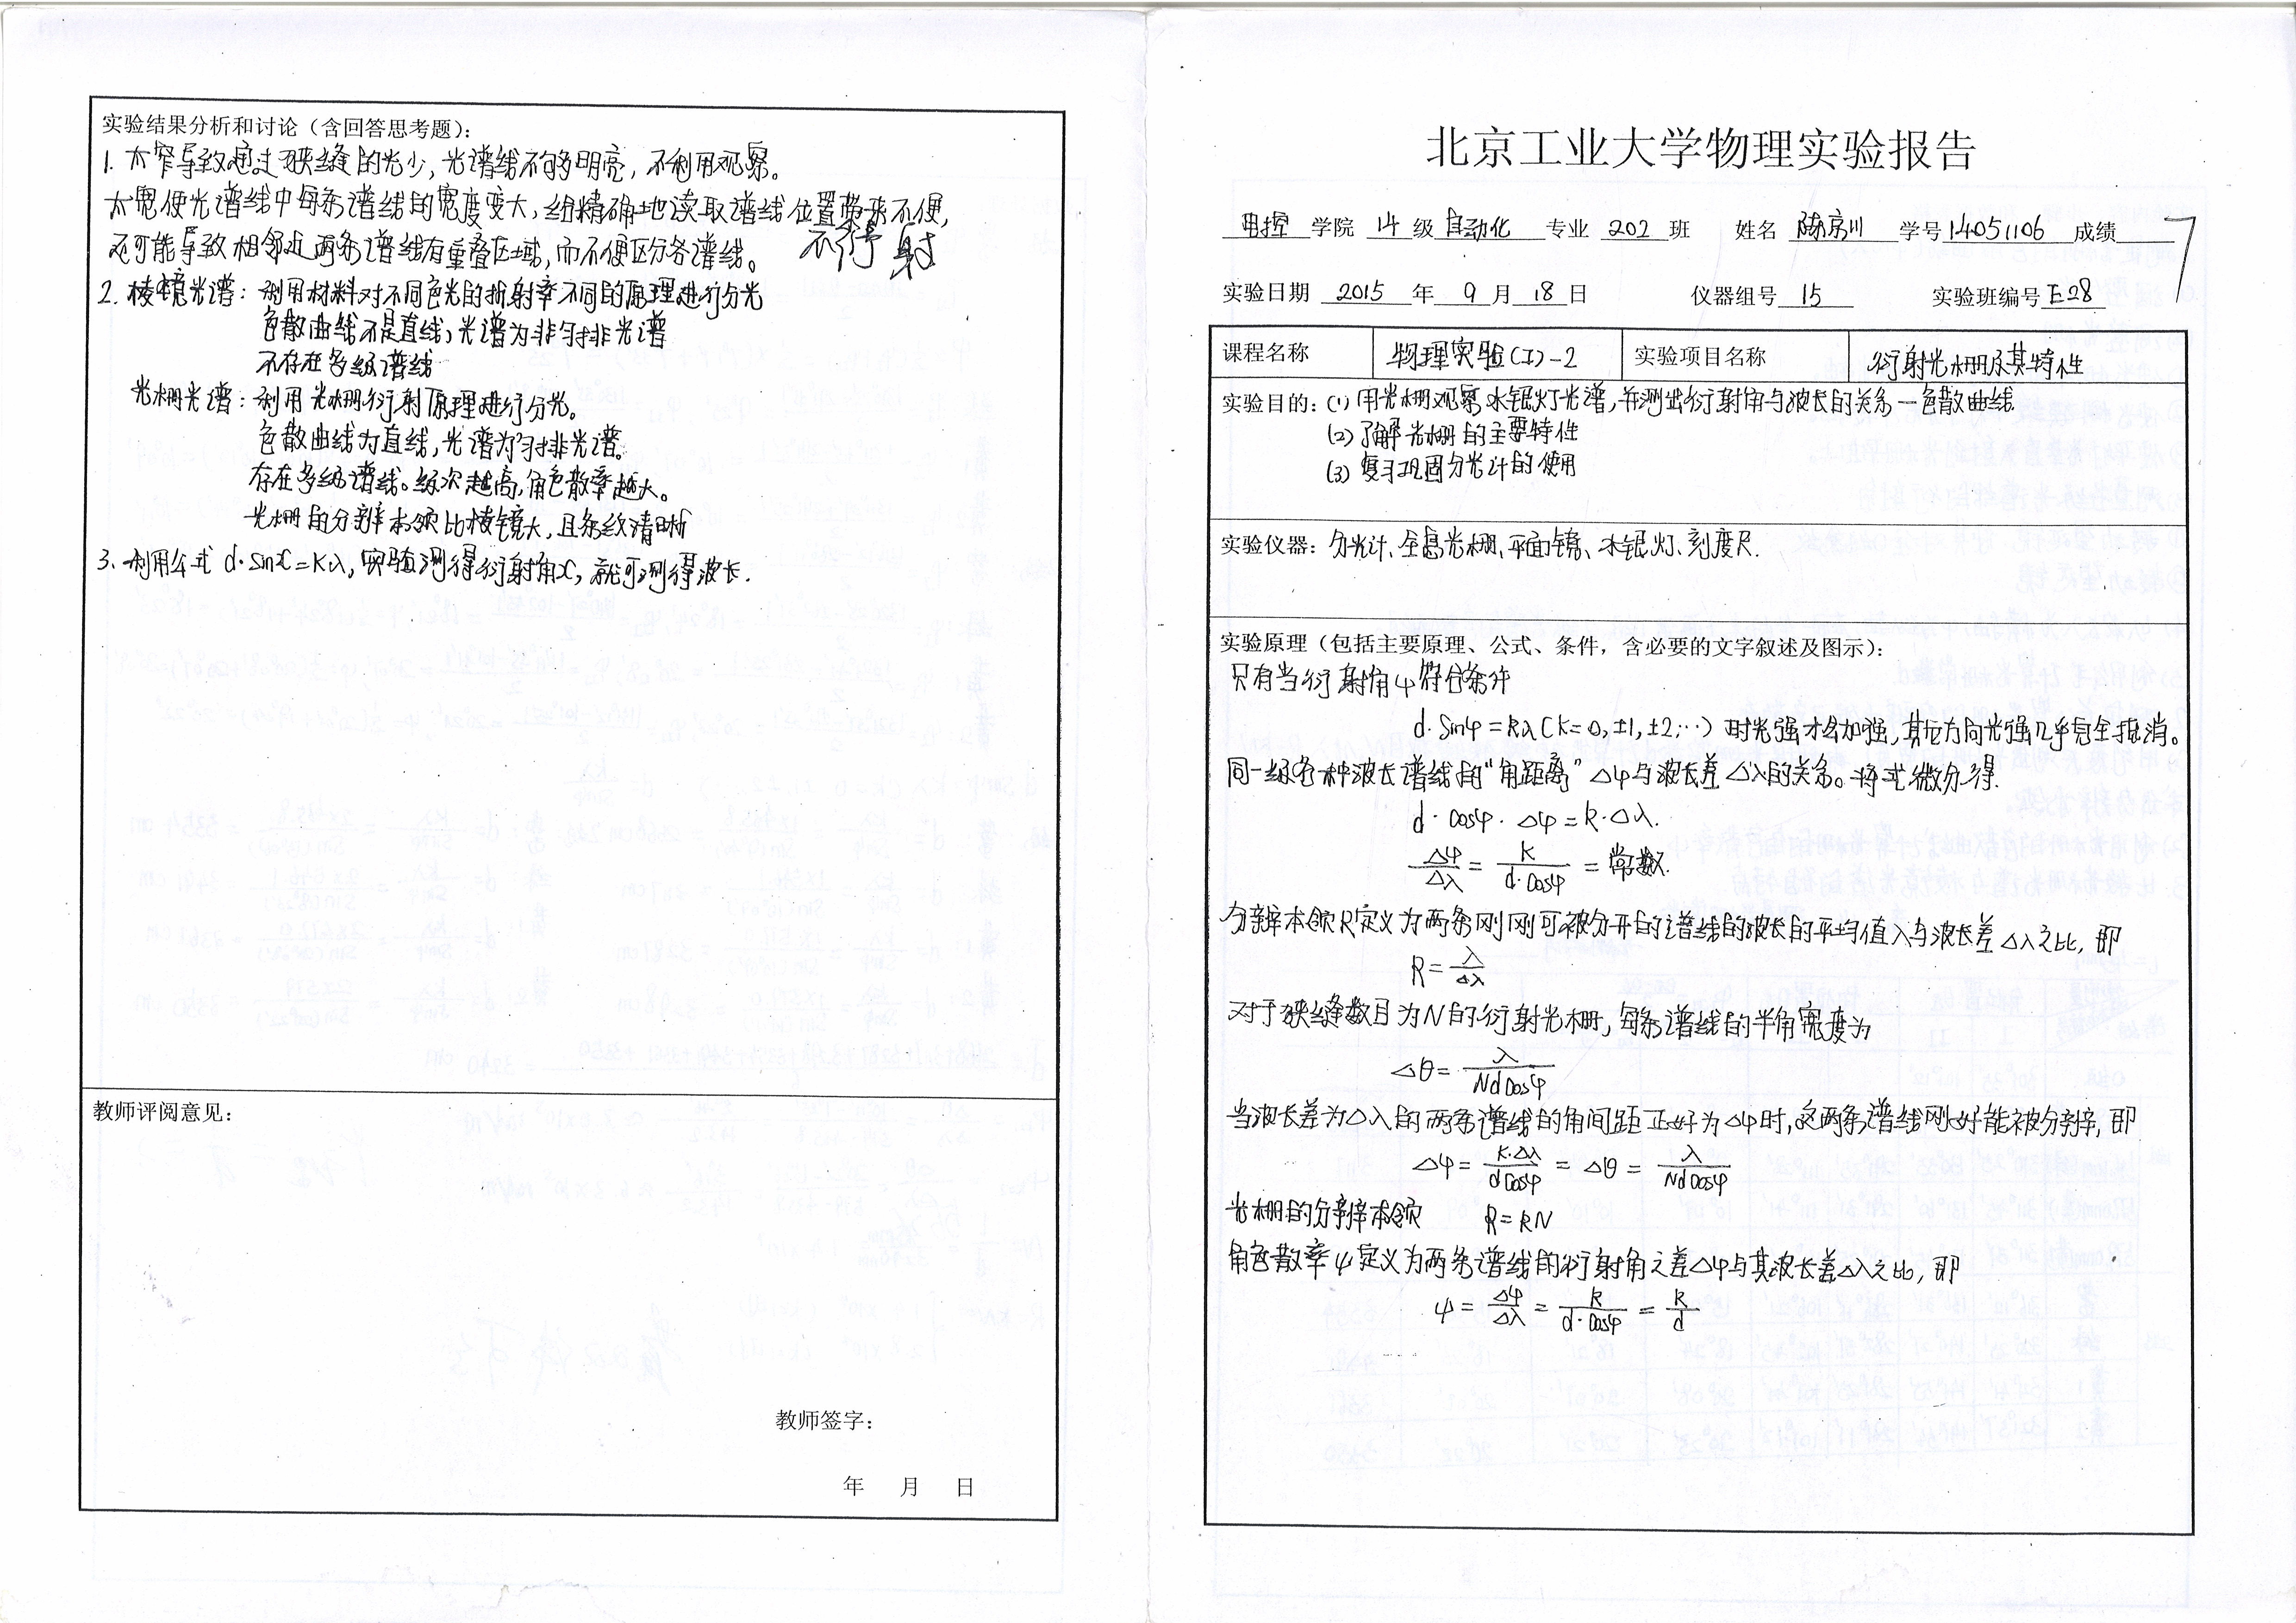 实验结果分析和讨论（含回答思考题）：
1. 太窄导致通过狭缝的光少，光谱线不够明亮，不利用观察。
太宽使光谱线中每条谱线的宽度变大，给精确地读取谱线位置带来不便，
还可能导致相邻近两条谱线有重叠区域，而不便区分各谱线。
2. 棱镜光谱：利用材料对不同色光的折射率不同的原理进行分光
色散曲线不是直线，光谱为非匀排光谱
不存在多级谱线
光栅光谱：利用光栅衍射原理进行分光。
色散曲线为直线，光谱为匀排光谱。
存在多级谱线。级次越高，角色散率越大。
光栅的分辨本领比棱镜大，且条纹清晰
3、利用公式 d·Sinx=Kλ，实验测得衍射角x，就可测得波长.
教师评阅意见：
教师签字：
年 月 日
北京工业大学物理实验报告
电控 学院 14 级 自动化 专业 202 班 姓名 陈京川 学号 14051106 成绩 7
实验日期 2015 年 9 月 18 日 仪器组号 15 实验班编号 E28
课程名称 物理实验(I)-2 实验项目名称 衍射光栅及其特性
实验目的：(1) 用光栅观察水银灯光谱，并测出衍射角与波长的关系—色散曲线
(2) 了解光栅的主要特性
(3) 复习巩固分光计的使用
实验仪器：分光计、全息光栅、平面镜、水银灯、刻度尺.
实验原理（包括主要原理、公式、条件，含必要的文字叙述及图示）：
只有当衍射角φ符合条件
d·Sinφ=kλ(k=0,±1,±2,…) 时光强才会加强，其它方向光强几乎完全抵消。
同一级各种波长谱线的“角距离”△φ与波长差△λ的关系。将式微分得.
d·Cosφ·△φ=k·△λ.
△φ/△λ = k/(d·Cosφ) = 常数.
分辨本领R定义为两条刚刚可被分开的谱线的波长的平均值λ与波长差△λ之比，即
R=λ/△λ
对于狭缝数目为N的衍射光栅，每条谱线的半角宽度为
△θ=λ/(NdCosφ)
当波长差为△λ的两条谱线的角间距正好为△φ时，这两条谱线刚好能被分辨，即
△φ=k·△λ/(dCosφ)=△θ=λ/(NdCosφ)
光栅的分辨本领 R=kN
角色散率ψ定义为两条谱线的衍射角之差△φ与其波长差△λ之比，即
ψ=△φ/△λ=k/(d·Cosφ)=k/d